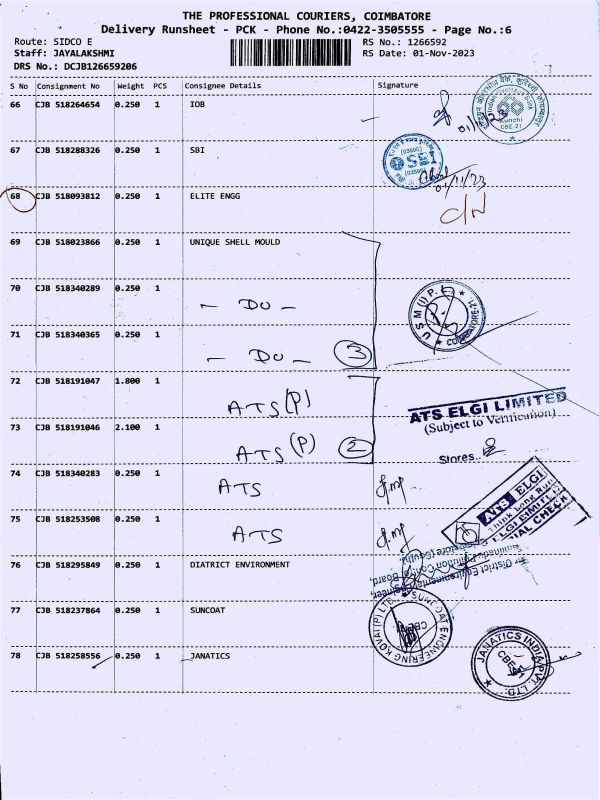 THE PROFESSIONAL COURIERS, COIMBATORE
Delivery Runsheet - PCK - Phone No.:0422-3505555 - Page No.:6
Route: SIDCO E
RS No.: 1266592
Staff: JAYALAKSHMI
RS Date: 01-Nov-2023
DRS No.: DCJB126659206
S No Consignment No Weight PCS Consignee Details Signature
66 CJB 518264654 0.250 1 IOB
CBE-21
67 CJB 518288326 0.250 1 SBI
SBI
01/11/23
68 CJB 518093812 0.250 1 ELITE ENGG
69 CJB 518023866 0.250 1 UNIQUE SHELL MOULD
70 CJB 518340289 0.250 1 - DO -
USM (I) P. L. COIMBATORE-21
71 CJB 518340365 0.250 1 - DO - 3
72 CJB 518191047 1.800 1 ATS (P)
ATS ELGI LIMITED
(Subject to Verification)
73 CJB 518191046 2.100 1 ATS (P) 2
Stores..
74 CJB 518340283 0.250 1 ATS
ATS ELGI
75 CJB 518253508 0.250 1 ATS
76 CJB 518295849 0.250 1 DIATRICT ENVIRONMENT
77 CJB 518237864 0.250 1 SUNCOAT
SUNCOAT ENGINEERING KOVAI (P) LTD.
78 CJB 518258556 0.250 1 JANATICS
JANATICS INDIA PVT. LTD.